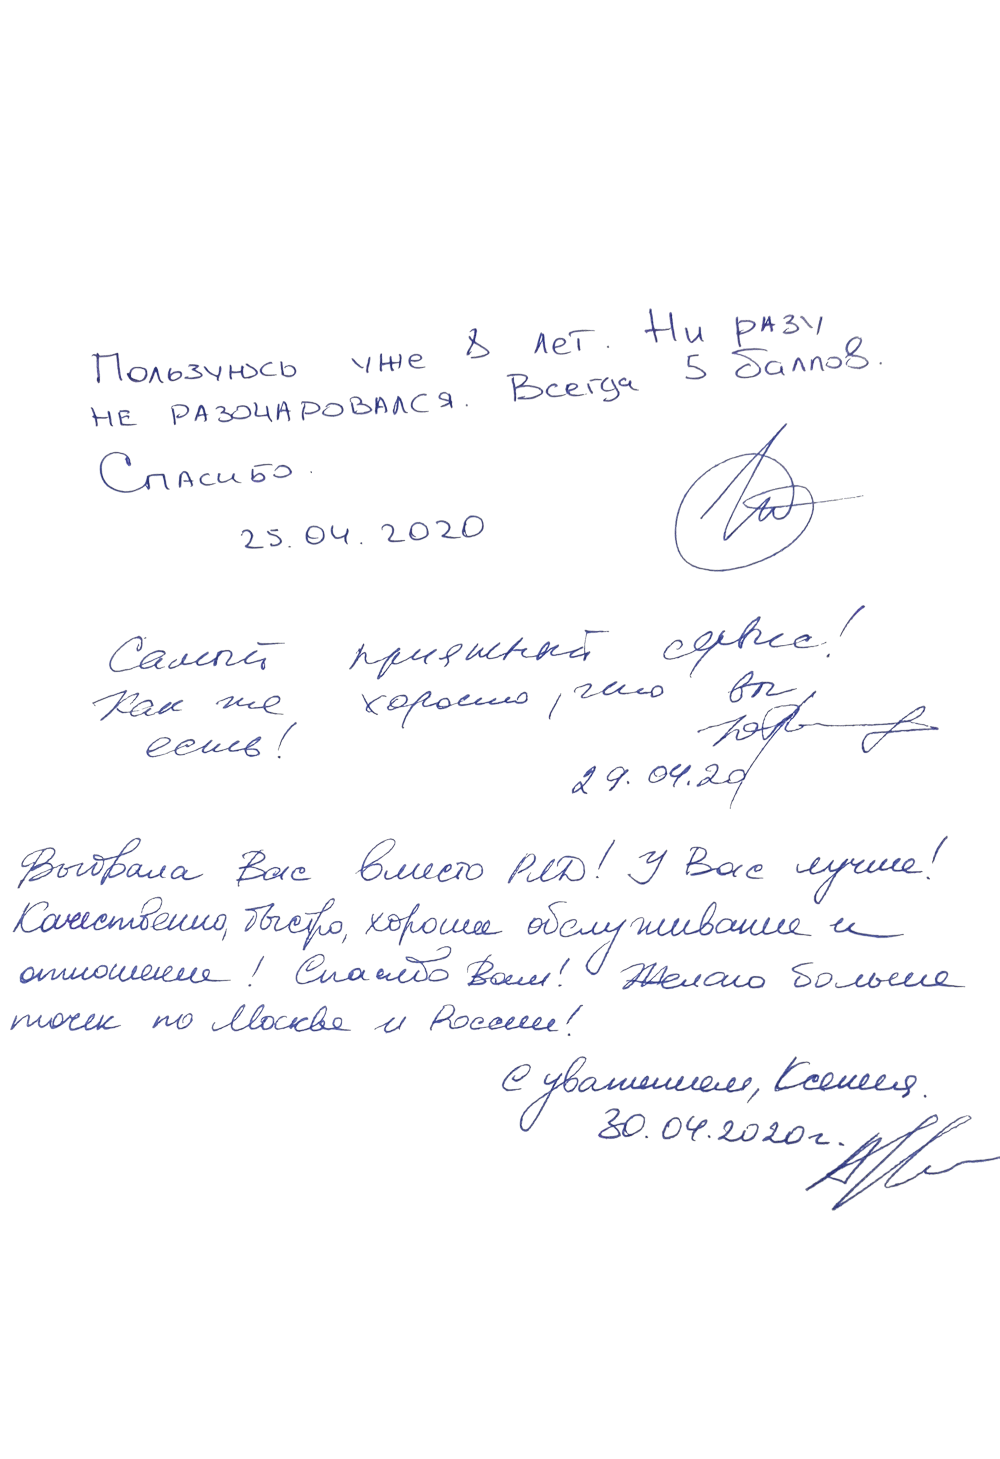 Пользуюсь уже 8 лет. Ни разу
не разочаровался. Всегда 5 баллов.
Спасибо.
25.04.2020
Самый приятный сервис!
Как же хорошо, что вы
есть!
29.04.20
Выбрала Вас вместо! У Вас лучше!
Качественно, быстро, хорошее обслуживание и
отношение! Спасибо Вам! Желаю больше
точек по Москве и России!
С уважением, Ксения.
30.04.2020г.